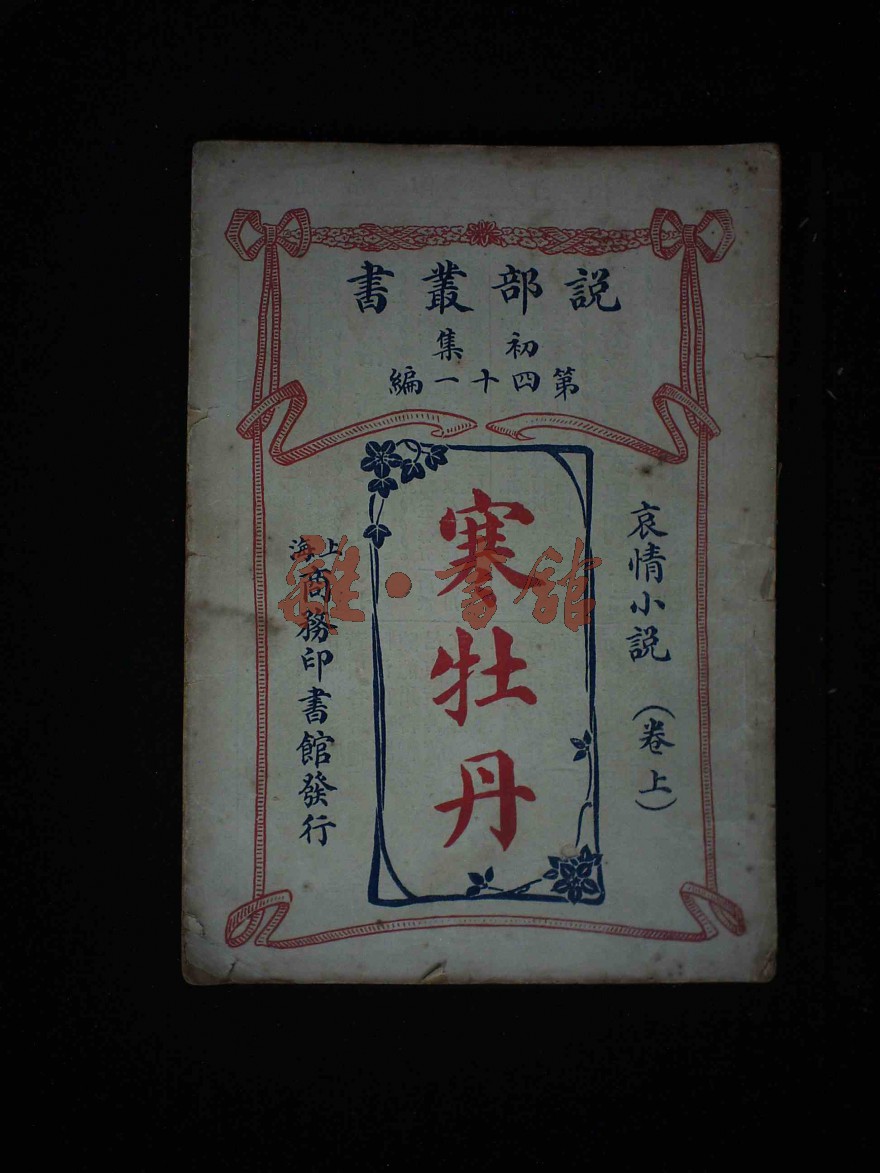 説部叢書
初集
第四十一編
哀情小説（卷上）
寒牡丹
上海商務印書館發行
雜·書館